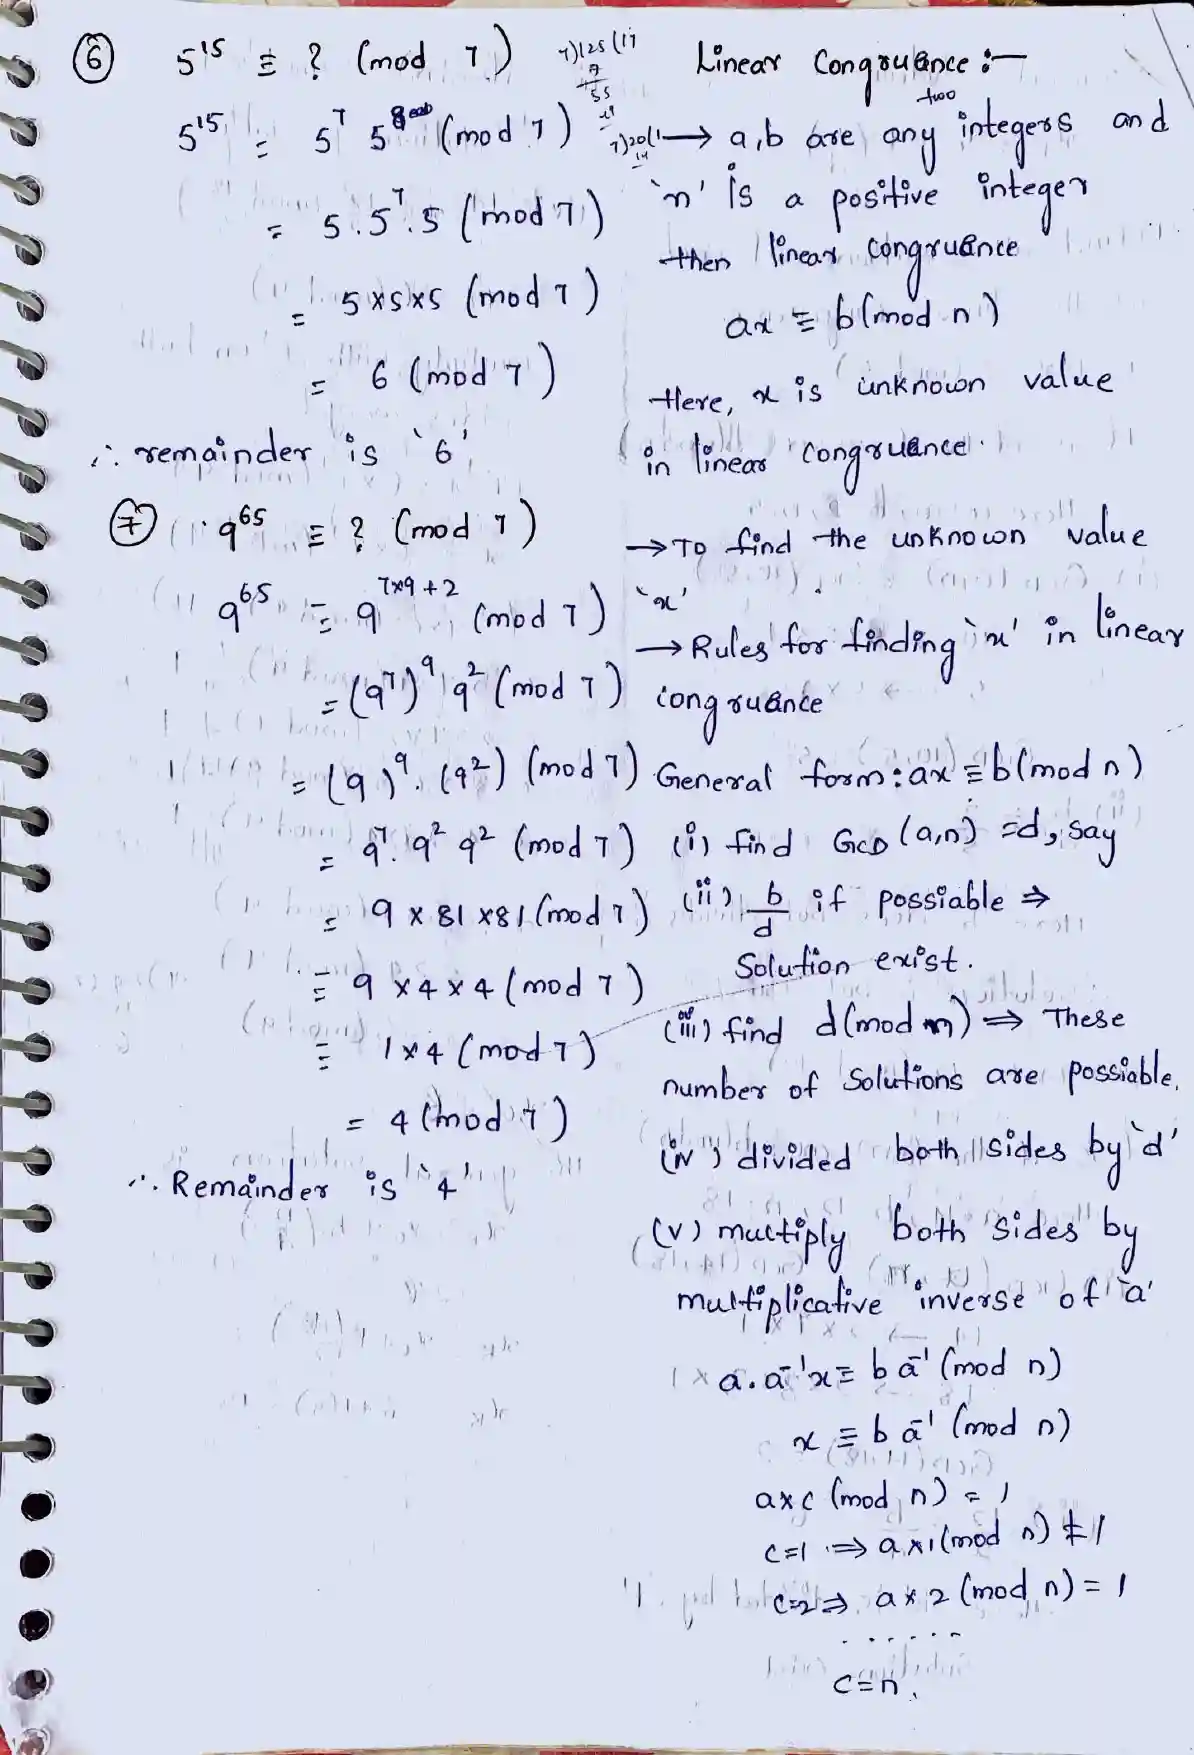 ⑥ 5^15 ≡ ? (mod 7)
5^15 ≡ 5^7 5^8 (mod 7)
= 5.5^7.5 (mod 7)
= 5×5×5 (mod 7)
= 6 (mod 7)
∴ remainder is '6'
⑦ 9^65 ≡ ? (mod 7)
9^65 ≡ 9^7×9+2 (mod 7)
= (9^7)^9 9^2 (mod 7)
= (9)^9. (9^2) (mod 7)
= 9^7. 9^2 9^2 (mod 7)
= 9 × 81 ×81 (mod 7)
≡ 9 ×4 ×4 (mod 7)
≡ 1×4 (mod 7)
= 4 (mod 7)
∴ Remainder is '4'
7)125(17
7
55
7)20(1
14
Linear Congruance :-
→ a,b are any two integers and
'n' is a positive integer
then linear congruance
ax ≡ b(mod n)
Here, x is unknown value
in linear congruance.
→ To find the unknown value
'x'
→ Rules for finding 'x' in linear
congruance
General form: ax ≡ b(mod n)
(i) find GCD (a,n) = d, say
(ii) b/d if possiable ⇒
Solution exist.
(iii) find d(mod n) ⇒ These
number of Solutions are possiable.
(iv) divided both sides by 'd'
(v) multiply both sides by
multiplicative inverse of 'a'
a.a^-1 x ≡ b a^-1 (mod n)
x ≡ b a^-1 (mod n)
a×c (mod n) = 1
c=1 ⇒ a×1(mod n) ≠ 1
c=2 ⇒ a×2 (mod n) = 1
......
c=n.